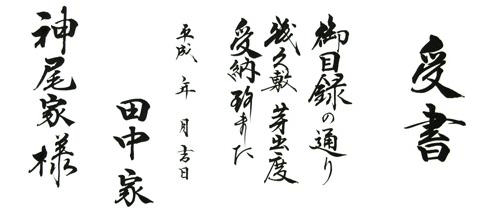 受書
御目録の通り
幾久敷芽出度
受納致しました
平成 年 月吉日
田中家
神尾家様